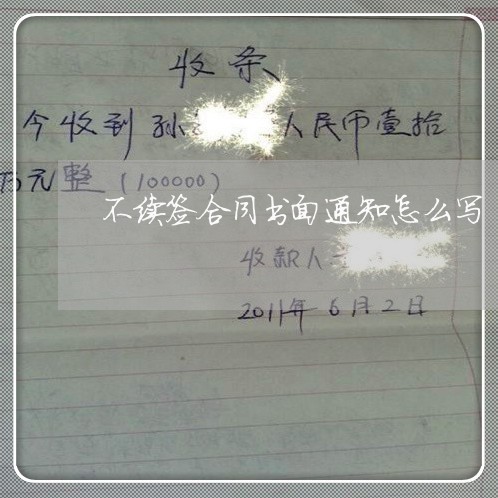 收条
今收到孙 人民币壹拾
万元整(100000)
不续签合同书面通知怎么写
收款人
2011年6月2日